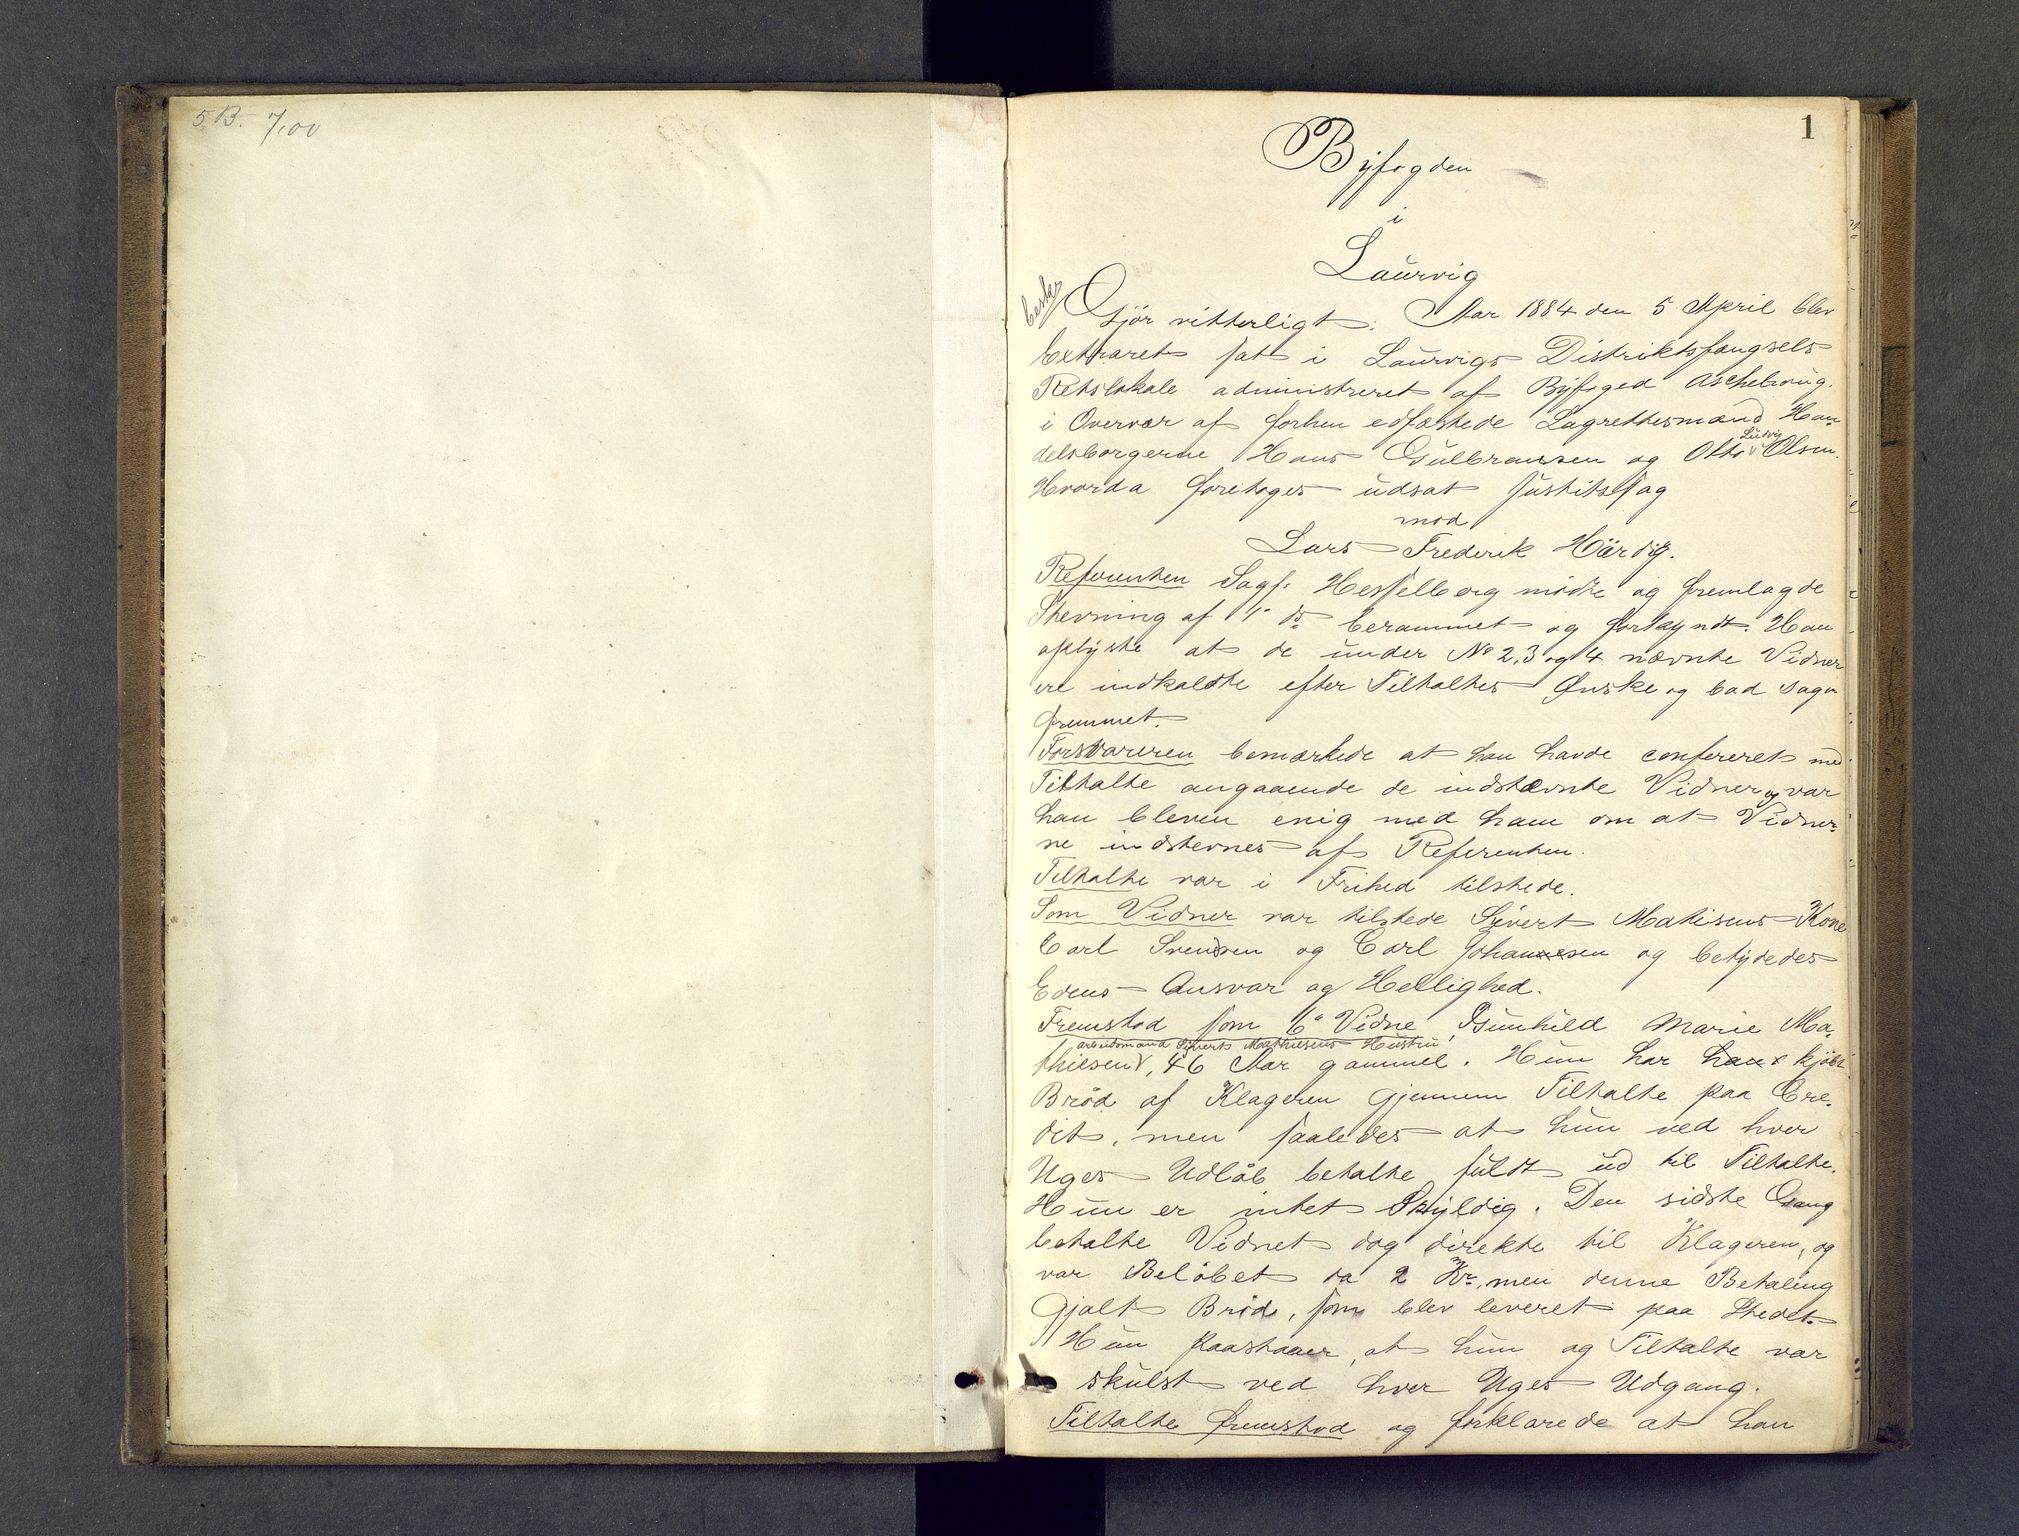 5 B. 7,00
1
Byfogden
i
Laurvig
Gjör vitterligt: Aar 1884 den 5 April blev
Extraret sat i Laurvigs Distriktsfængsels
Retslokale administreret af Byfoged Aschehoug.
i Overvær af forhen edfæstede Lagrettesmænd Han-
delsborgerne Hans Gulbransen og Otto Ludvig Olsen.
Hvorda foretoges udsat Justitssag
mod
Lars Frederik Härdig.
Referenten Sagf. Hesselberg mødte og fremlagde
Stevning af 1 ds berammet og forkyndt. Han
oplyste at de under No 2, 3 og 4 nævnte Vidner
ere indkaldte efter Tiltaltes Ønske og bad Sagen
fremmet.
Forsvareren bemærkede at han havde confereret med
Tiltalte angaaende de indstævnte Vidner og var
han bleven enig med ham om at Vidner-
ne indstevnes af Referenten.
Tiltalte var i Frihed tilstede.
Som Vidner var tilstede Sivert Matisens Kone
Carl Svendsen og Carl Johannesen og betydedes
Edens Ansvar og Hellighed.
Fremstod som 6te Vidne, Gunhild Marie Ma-
arbeidsmand Siverts Mathiesens Hustru
thiesen, 46 Aar gammel. Hun har kjøbt
Brød af Klageren gjennem Tiltalte paa Cre-
dit, men saaledes at hun ved hver
Uges Udløb betalte fuldt ud til Tiltalte.
Hun er intet skyldig. Den sidste Gang
betalte Vidnet dog direkte til Klageren, og
var Beløbet da 2 Kr, men denne Betaling
gjalt Brød, som blev leveret paa Stedet.
Hun paastaaer, at hun og Tiltalte var
skulst ved hver Uges Udgang.
Tiltalte fremstod og forklarede at han